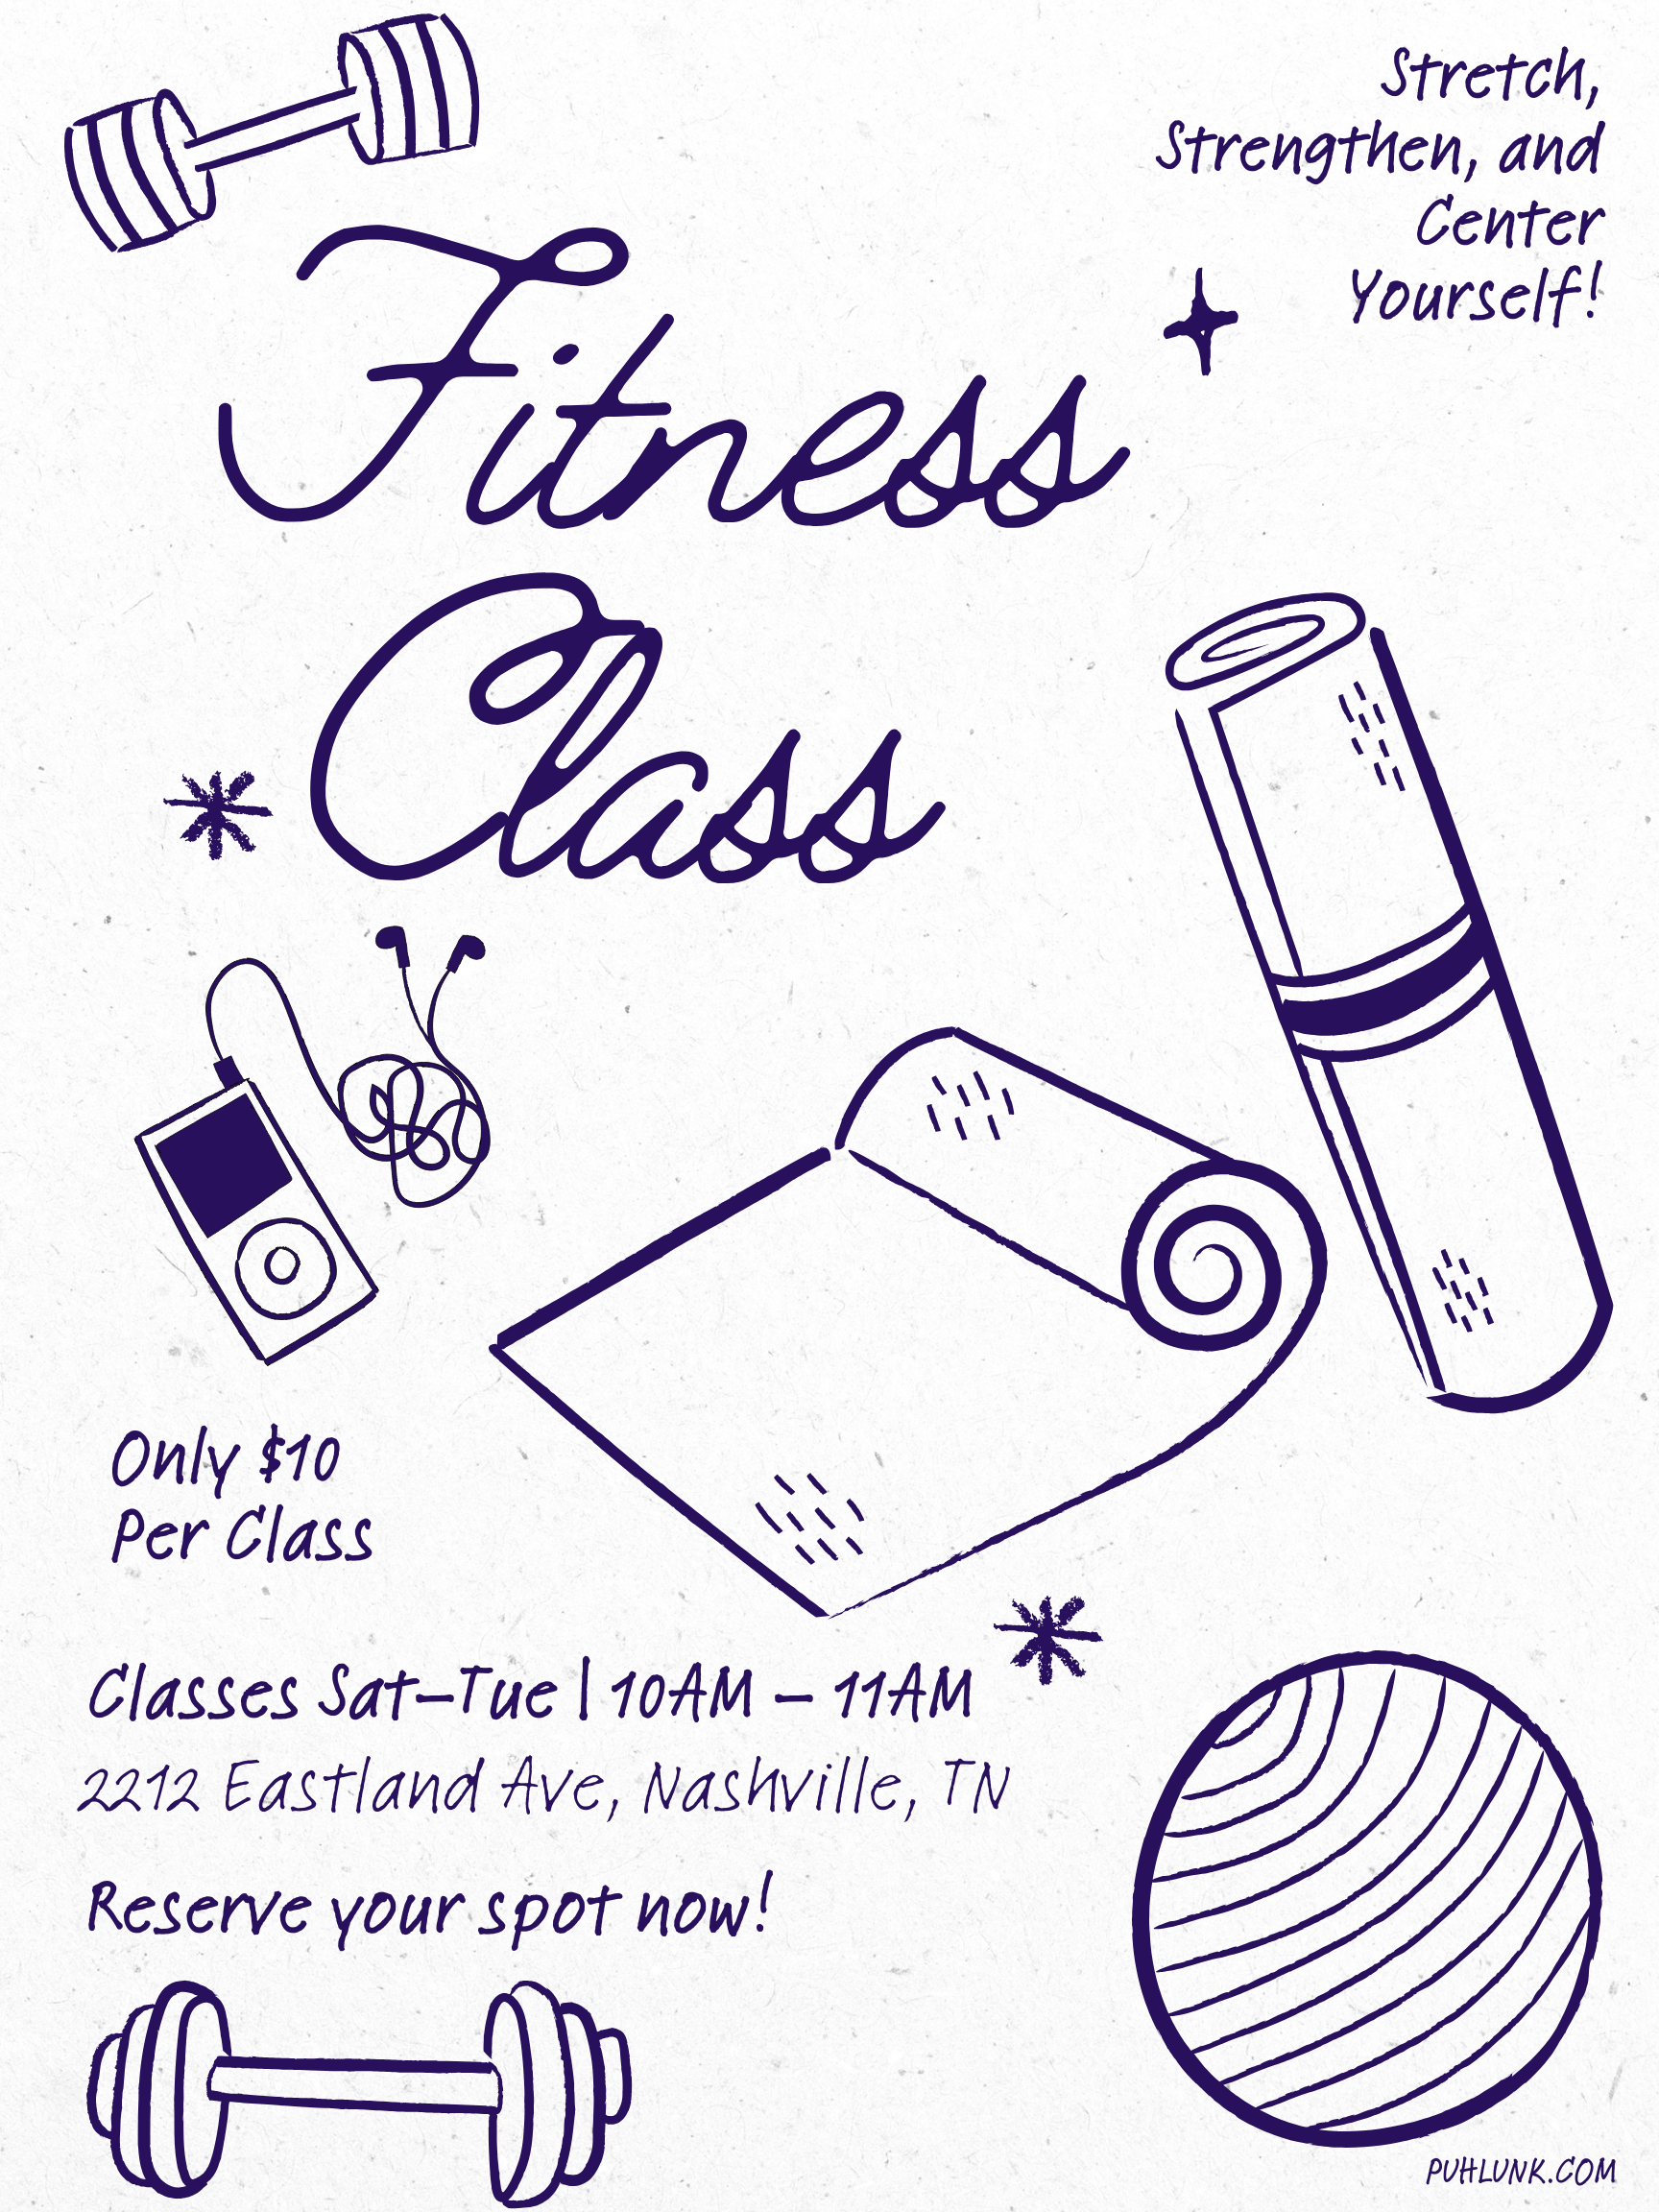 Stretch,
Strengthen, and
Center
Yourself!
Fitness
Class
Only $10
Per Class
Classes Sat–Tue | 10AM – 11AM
2212 Eastland Ave, Nashville, TN
Reserve your spot now!
PUHLUNK.COM